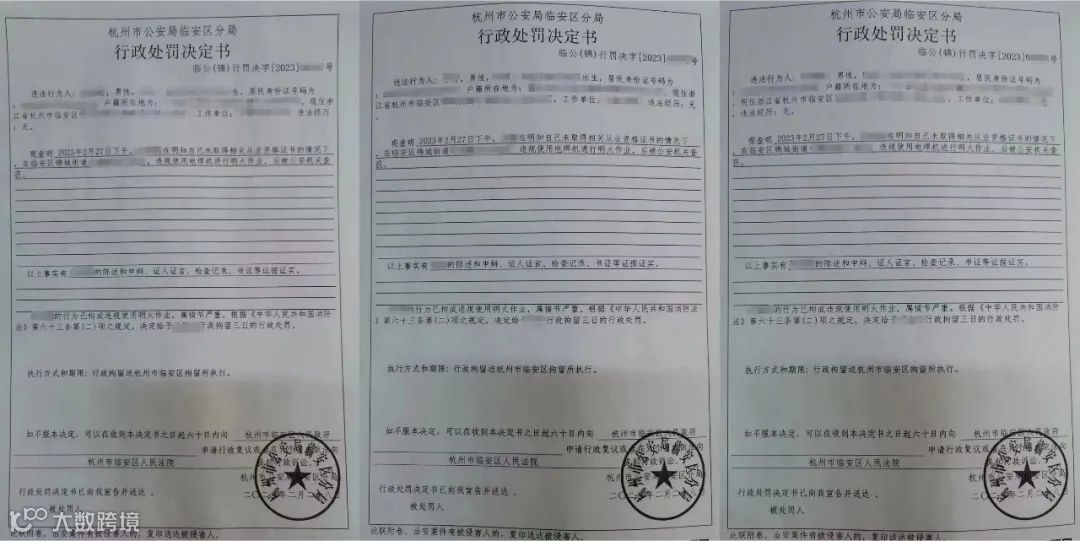 杭州市公安局临安区分局
行政处罚决定书
临公(锦)行罚决字[2023] 号
违法行为人: ,男性, 出生,居民身份证号码为
: 户籍所在地为: ,现住浙
江省杭州市临安区 ,工作单位: 违法经历
:无。
现查明 2023年2月27日下午, 在明知自己未取得相关从业资格证书的情况下
,在临安区锦城街道 违规使用电焊机进行明火作业,后被公安机关查
获。
以上事实有 的陈述和申辩、证人证言、检查记录、书证等证据证实。
的行为已构成违规使用明火作业,属情节严重。根据《中华人民共和国消防
法》第六十三条第(二)项之规定,决定给予 行政拘留三日的行政处罚。
执行方式和期限:行政拘留送杭州市临安区拘留所执行。
如不服本决定,可以在收到本决定书之日起六十日内向 杭州市临安区人民政府
申请行政复议或
杭州市临安区人民法院
行政处罚决定书已向我宣告并送达。
被处罚人
此联附卷。治安案件有被侵害人的,复印送达被侵害人。
杭州市公安局临安区分局
行政处罚决定书
临公(锦)行罚决字[2023] 号
违法行为人: ,男性, 出生,居民身份证号码为
: 户籍所在地为: ,现住浙
江省杭州市临安区 ,工作单位: 违法经历:无
。
现查明 2023年2月27日下午, 在明知自己未取得相关从业资格证书的情况下
,在临安区锦城街道 违规使用电焊机进行明火作业,后被公安机关查
获。
以上事实有 的陈述和申辩、证人证言、检查记录、书证等证据证实。
的行为已构成违规使用明火作业,属情节严重。根据《中华人民共和国消防法
》第六十三条第(二)项之规定,决定给 行政拘留三日的行政处罚。
执行方式和期限:行政拘留送杭州市临安区拘留所执行。
如不服本决定,可以在收到本决定书之日起六十日内向 杭州市临安区人民政府
申请行政复议或
杭州市临安区人民法院
行政处罚决定书已向我宣告并送达。
被处罚人
此联附卷。治安案件有被侵害人的,复印送达被侵害人。
杭州市公安局临安区分局
行政处罚决定书
临公(锦)行罚决字[2023] 号
违法行为人: ,男性, 出生,居民身份证号码为
: 户籍所在地为:
,现住浙江省杭州市临安区 ,工作单位: 违法
经历:无。
现查明 2023年2月27日下午, 在明知自己未取得相关从业资格证书的情况下
,在临安区锦城街道 违规使用电焊机进行明火作业,后被公安机关查
获。
以上事实有 的陈述和申辩、证人证言、检查记录、书证等证据证实。
的行为已构成违规使用明火作业,属情节严重。根据《中华人民共和国消防
法》第六十三条第(二)项之规定,决定给予 行政拘留三日的行政处罚。
执行方式和期限:行政拘留送杭州市临安区拘留所执行。
如不服本决定,可以在收到本决定书之日起六十日内向 杭州市临安区人民政府
申请行政复议或
杭州市临安区人民法院
行政处罚决定书已向我宣告并送达。
被处罚人
此联附卷。治安案件有被侵害人的,复印送达被侵害人。
杭州市公安局临安区分局
杭州市公安局临安区分局
杭州市公安局临安区分局
大数跨境